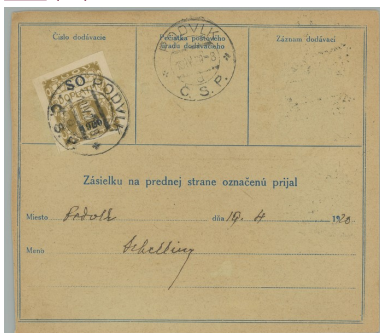 Číslo dodávacie
Pečiatka poštového
úradu dodávacieho
Záznam dodávací
PODVLK
Č. S. P.
PODVLK
Č. S. P.
DOPLATIT
50
Zásielku na prednej strane označenú prijal
Miesto Podvlk dňa 19. 4 1920
Meno